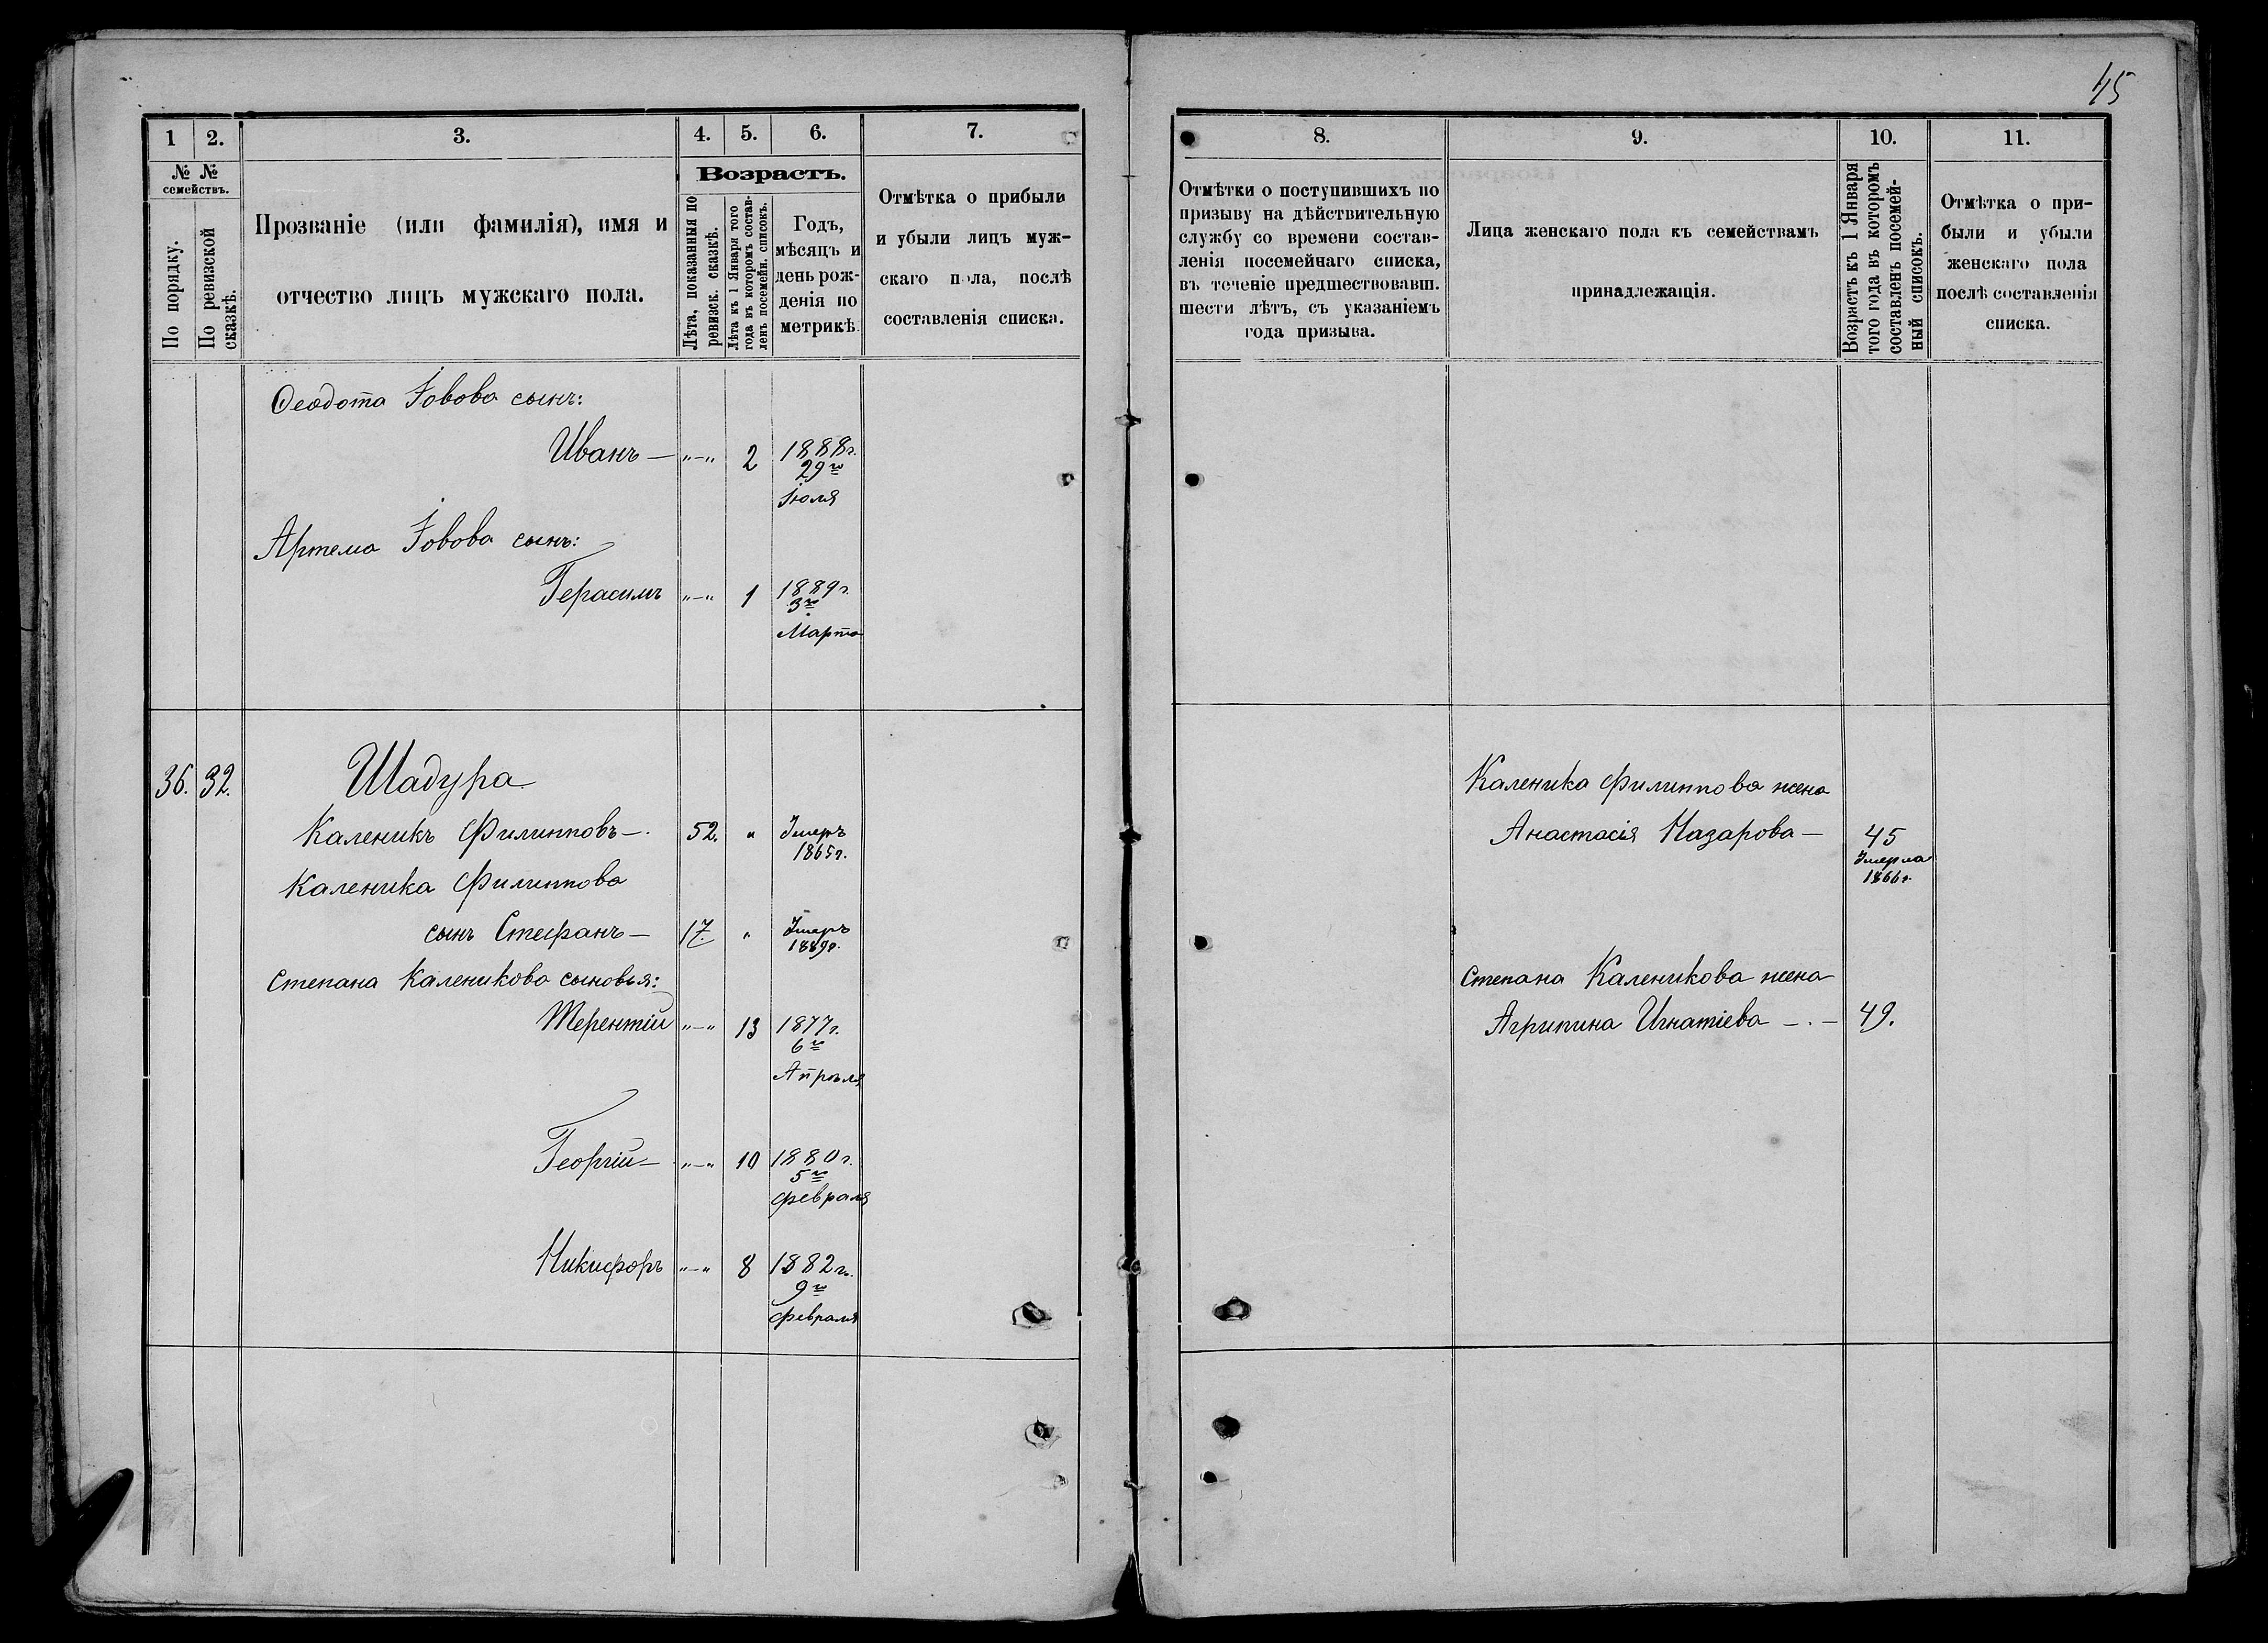 45
1
2.
3.
4.
5.
6.
7.
№ № семействъ.
По порядку.
По ревизской сказкѣ.
Прозваніе (или фамилія), имя и
отчество лицъ мужскаго пола.
Возрастъ.
Лѣта, показанныя по
ревизск. сказкѣ.
Лѣта къ 1 Января того
года въ которомъ состав-
ленъ посемейн. списокъ.
Годъ,
мѣсяцъ и
день рож-
денія по
метрикѣ.
Отмѣтка о прибыли
и убыли лицъ муж-
скаго пола, послѣ
составленія списка.
Ѳеодота Іовова сынъ:
Иванъ — "—" 2 1888г.
29го
Іюля
Артема Іовова сынъ:
Герасимъ "—" 1 1889г.
3го
Марта
36. 32. Шадура
Каленикъ Филипповъ —. 52. " Умеръ
1865г.
Каленика Филиппова
сынъ Стефанъ — 17. " Умеръ
1889г.
Степана Каленикова сыновья:
Терентій "—" 13 1877г.
6го
Апрѣля
Георгій — "—" 10 1880г.
5го
февраля
Никифоръ "—" 8 1882г.
9го
февраля
8.
9.
10.
11.
Отмѣтки о поступившихъ по
призыву на дѣйствительную
службу со времени состав-
ленія посемейнаго списка,
въ теченіе предшествовавш.
шести лѣтъ, съ указаніемъ
года призыва.
Лица женскаго пола къ семействамъ
принадлежащія.
Возрастъ къ 1 Января
того года въ которомъ
составленъ посемей-
ный списокъ.
Отмѣтка о при-
были и убыли
женскаго пола
послѣ составленія
списка.
Каленика Филиппова жена
Анастасія Назарова — 45
Умерла
1866г.
Степана Каленикова жена
Агрипина Игнатіева —.— 49.